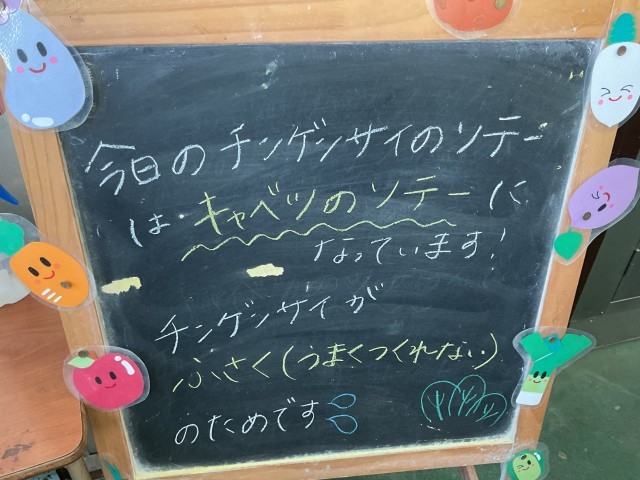 今日のチンゲンサイのソテー
は キャベツのソテーに
なっています!
チンゲンサイが
ふさく(うまくつくれない)
のためです